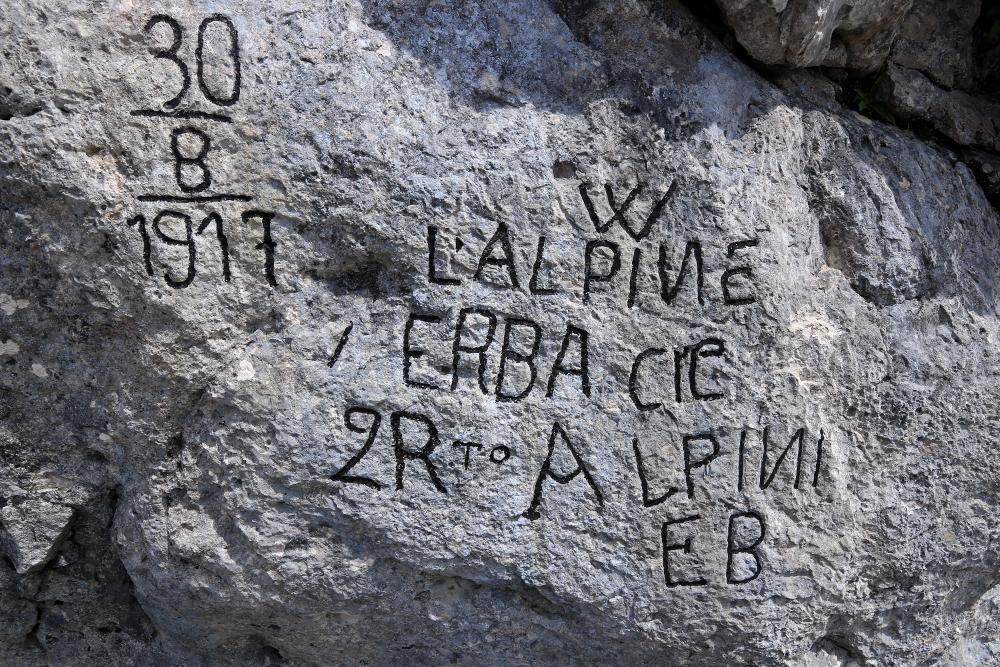 30
8
1917
W
L'ALPINE
ERBA CIE
2RTO ALPINI
EB